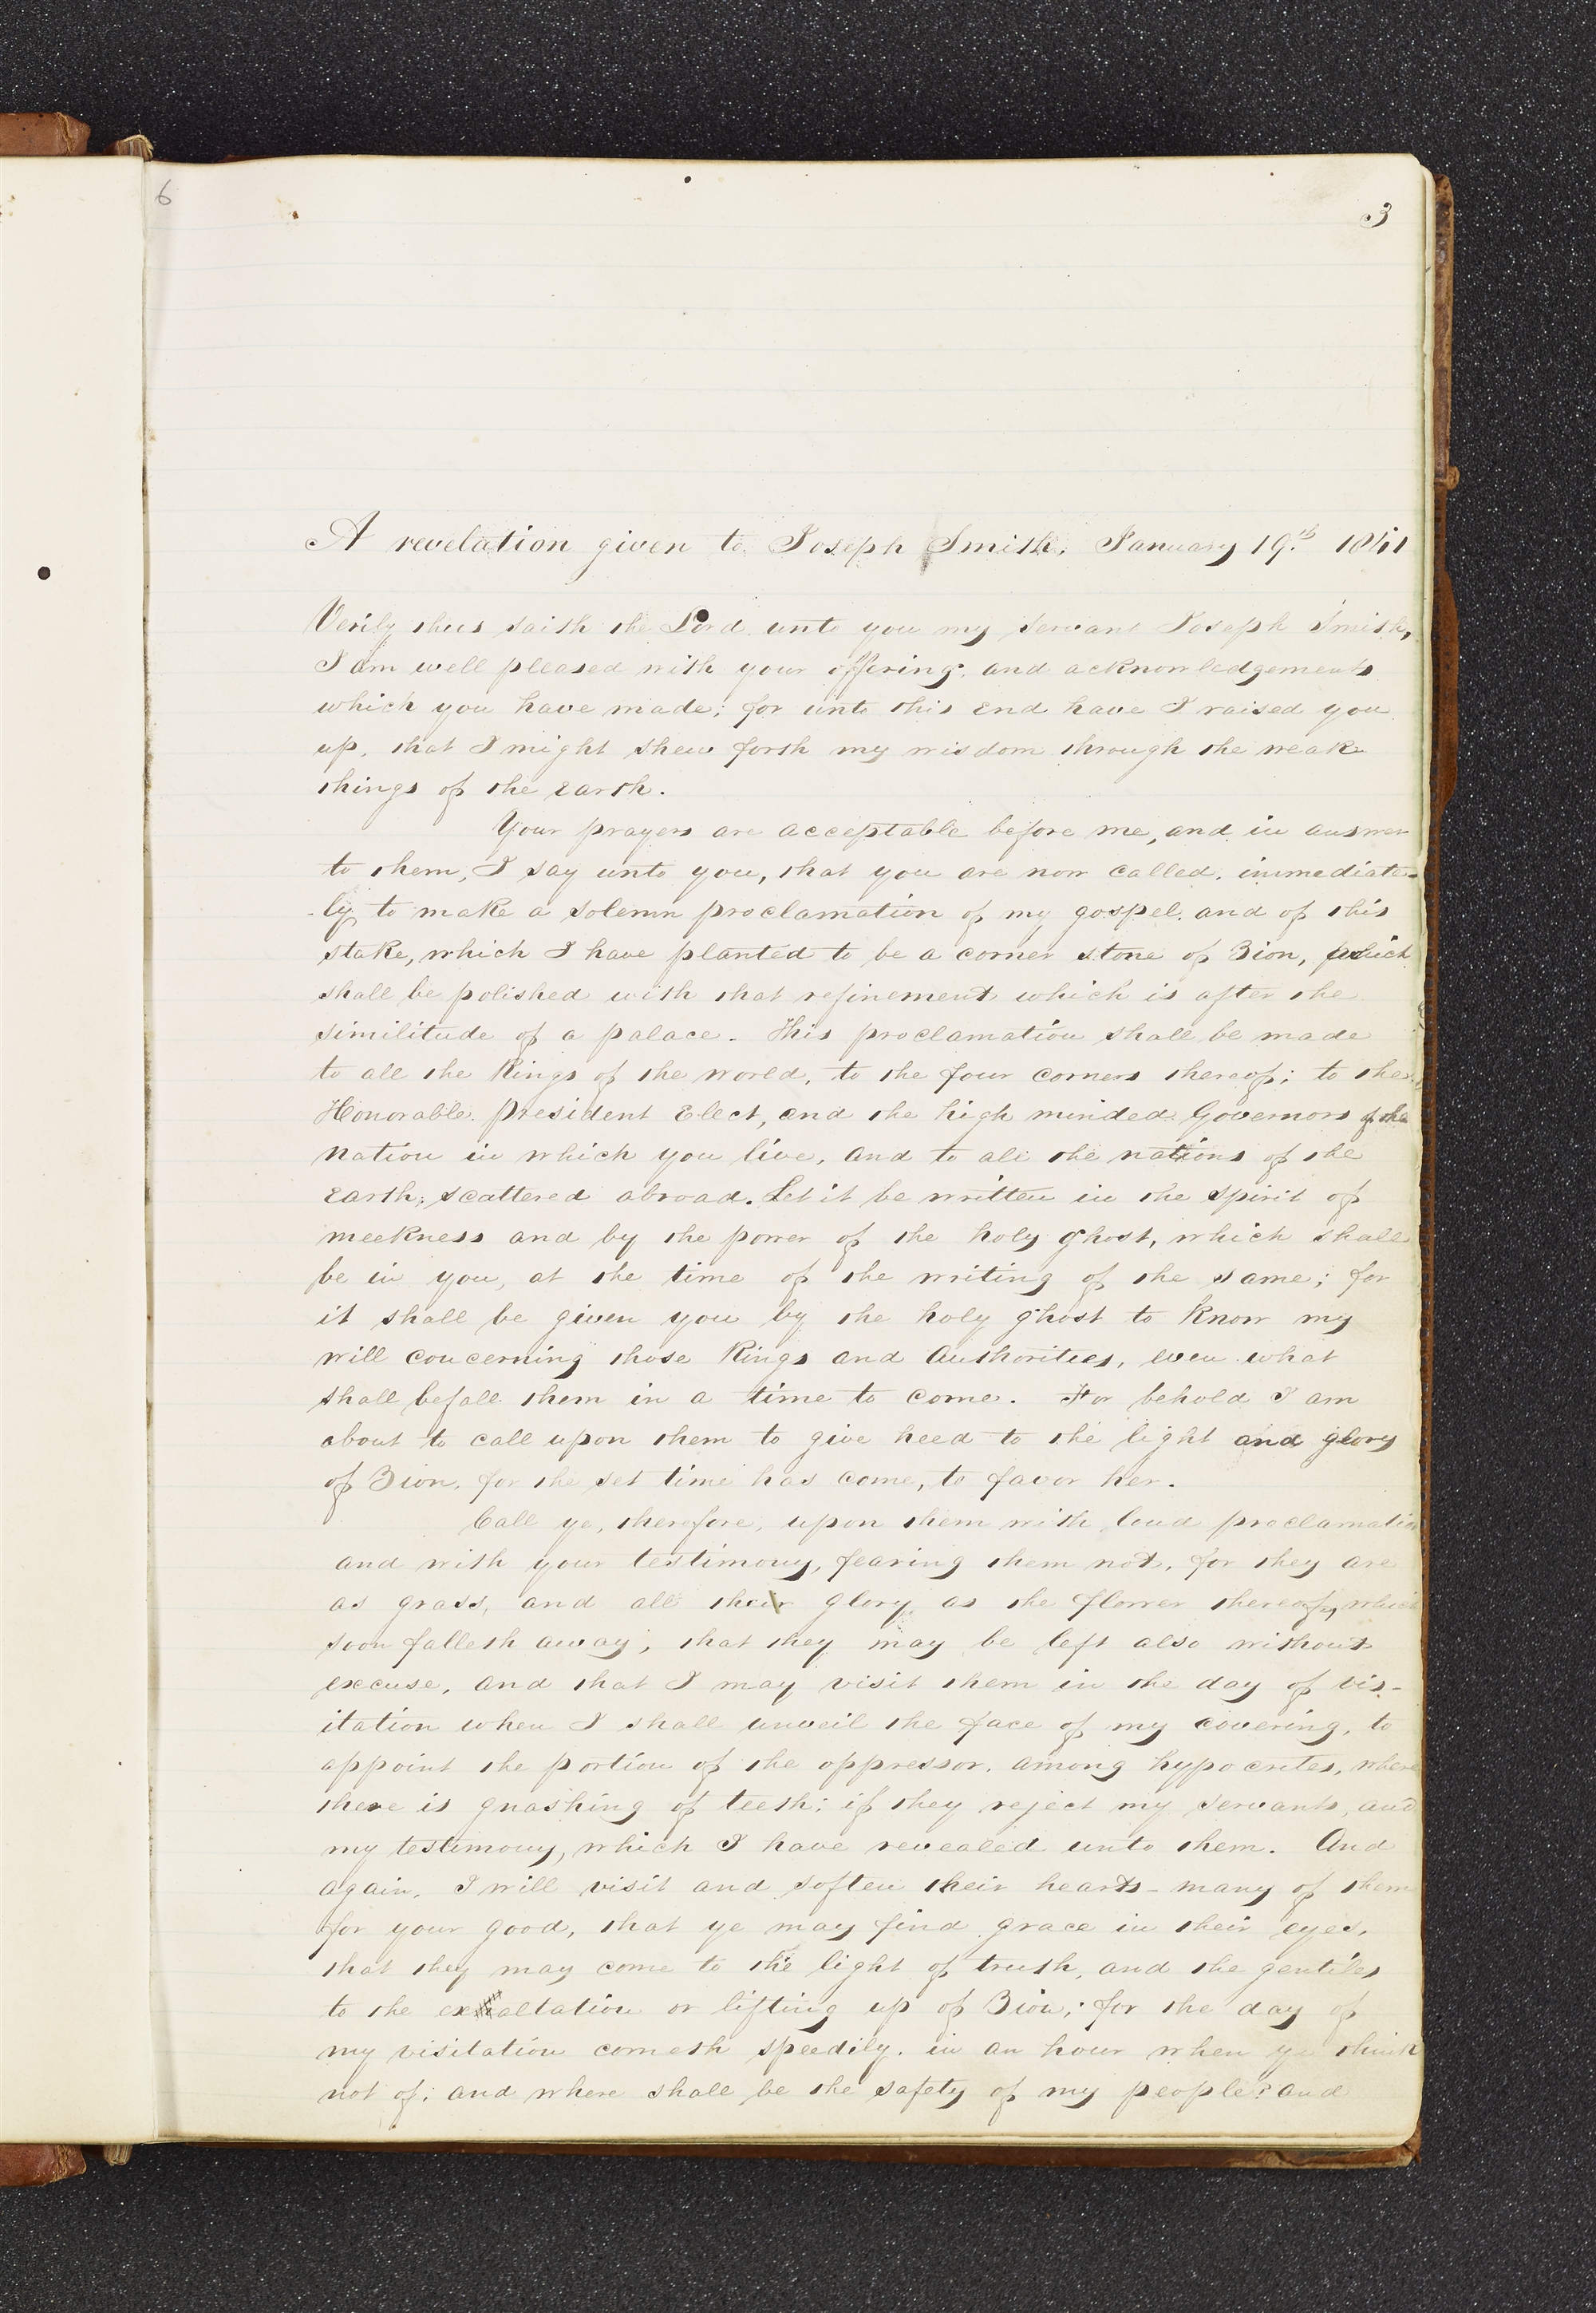 6
3
A revelation given to Joseph Smith, January 19.th 1841
Verily thus saith the Lord unto you my servant Joseph Smith,
I am well pleased with your offering, and acknowledgements
which you have made; for unto this end have I raised you
up, that I might shew forth my wisdom through the weak
things of the earth.
Your prayers are acceptable before me, and in answer
to them, I say unto you, that you are now called, immediate-
-ly to make a solemn proclamation of my gospel, and of this
stake, which I have planted to be a corner stone of Zion, which
shall be polished with that refinement which is after the
similitude of a palace. This proclamation shall be made
to all the Kings of the world, to the four corners thereof; to the
Honorable President Elect, and the high minded Governors of the
nation in which you live, and to all the nations of the
earth, scattered abroad. Let it be written in the spirit of
meekness and by the power of the holy ghost, which shall
be in you, at the time of the writing of the same; for
it shall be given you by the holy ghost to know my
will concerning those Kings and Authorities, even what
shall befall them in a time to come. For behold I am
about to call upon them to give heed to the light and glory
of Zion, for the set time has come, to favor her.
Call ye, therefore, upon them with loud proclamation
and with your testimony, fearing them not, for they are
as grass, and all their glory as the flower thereof, which
soon falleth away; that they may be left also without
excuse, and that I may visit them in the day of vis-
itation when I shall unveil the face of my covering, to
appoint the portion of the oppressor, among hypocrites, where
there is gnashing of teeth; if they reject my servants, and
my testimony, which I have revealed unto them. And
again, I will visit and soften their hearts - many of them
for your good, that ye may find grace in their eyes,
that they may come to the light of truth, and the gentiles
to the exaltation or lifting up of Zion; for the day of
my visitation cometh speedily, in an hour when ye think
not of; and where shall be the safety of my people? and